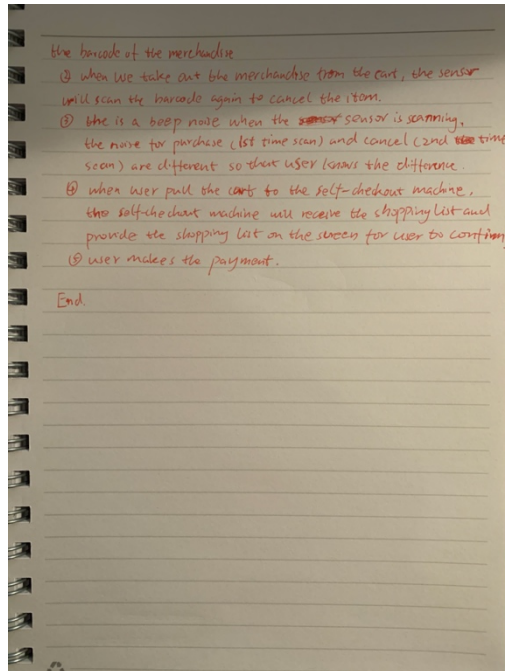 the barcode of the merchandise
② when we take out the merchandise from the cart, the sensor
will scan the barcode again to cancel the item.
③ the is a beep noise when the sensor is scanning,
the noise for purchase (1st time scan) and cancel (2nd time
scan) are different so that user knows the difference.
④ when user pull the cart to the self-checkout machine,
the self-checkout machine will receive the shopping list and
provide the shopping list on the screen for user to confirm
⑤ user makes the payment.
End.